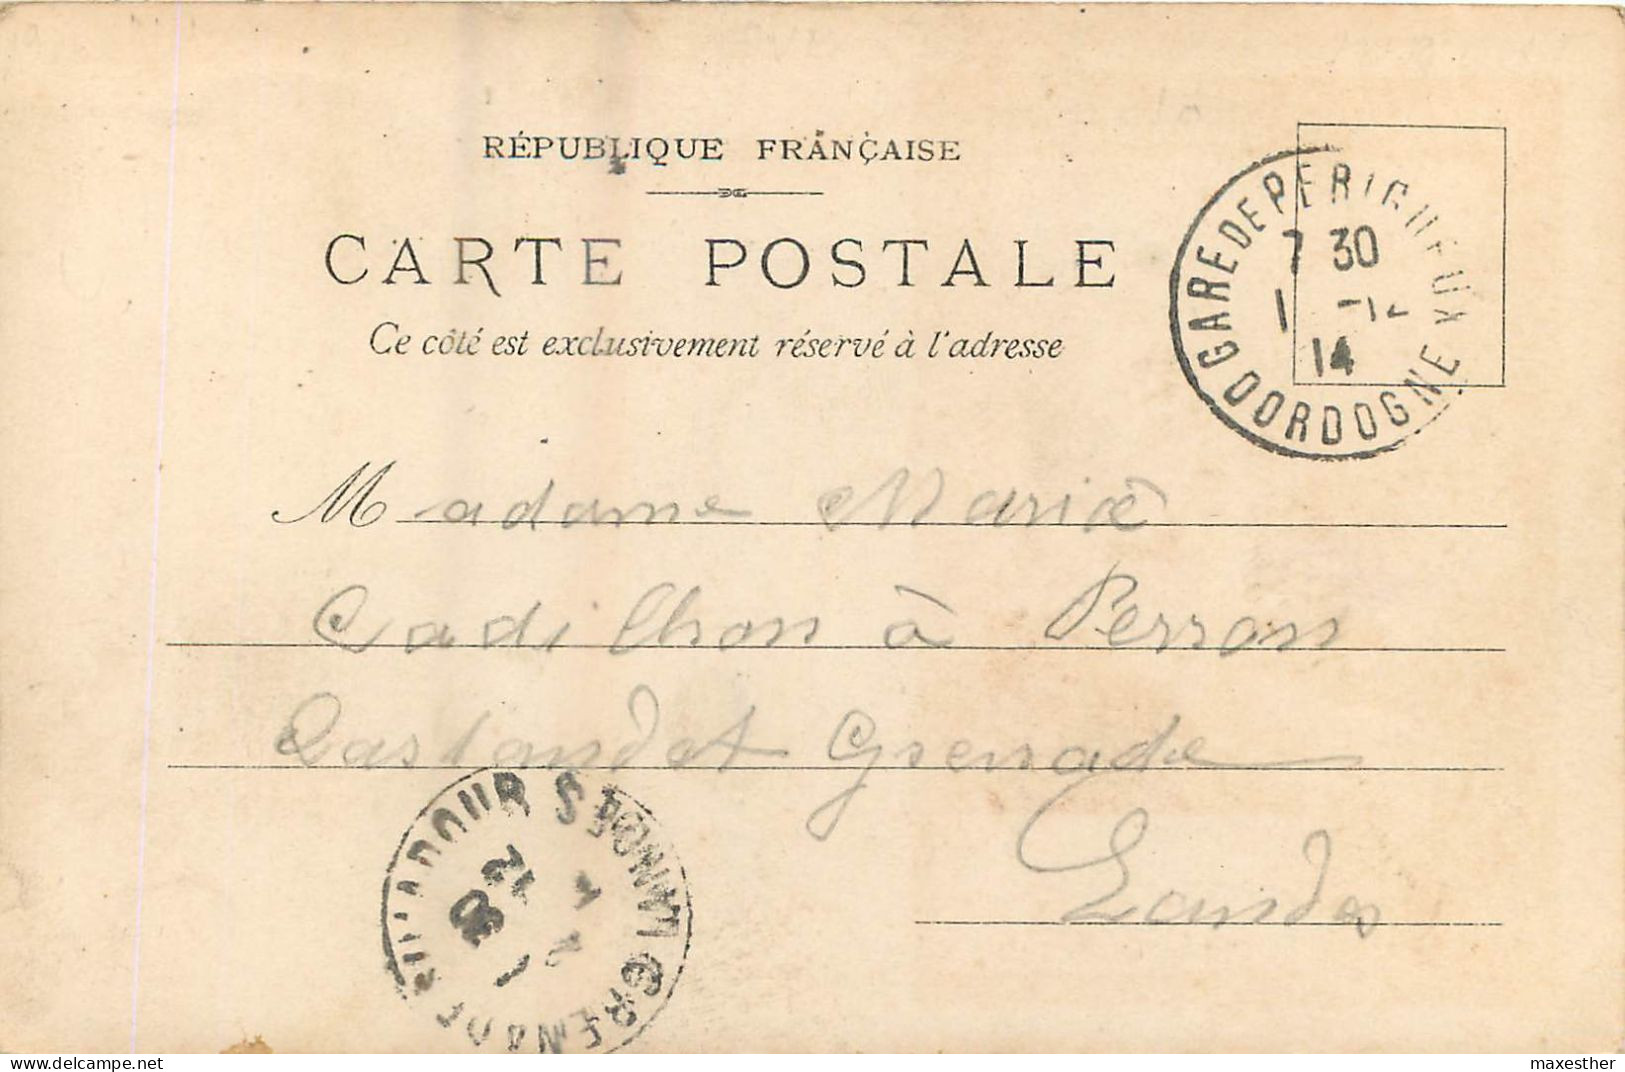 RÉPUBLIQUE FRANÇAISE
CARTE POSTALE
Ce côté est exclusivement réservé à l'adresse
GARE DE PERIGUEUX DORDOGNE
7 30
1 -12
14
Madame Marie
Cadilhon à Perron
Castandet Grenade
Landes
GRENADE SUR L'ADOUR LANDES
maxesther